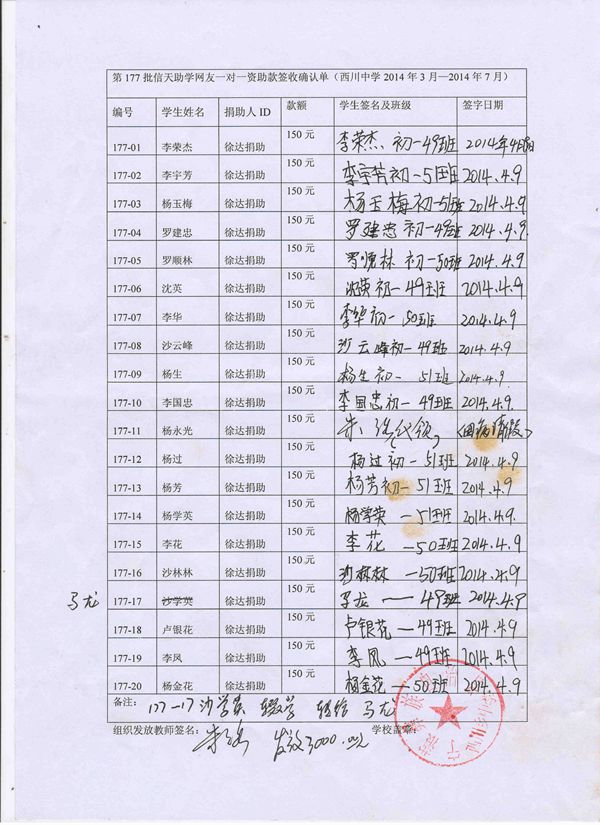 第 177 批信天助学网友一对一资助款签收确认单（西川中学 2014 年 3 月—2014 年 7 月）
编号 学生姓名 捐助人 ID 款额 学生签名及班级 签字日期
177-01 李荣杰 徐达捐助 150 元 李荣杰、初一49班 2014年4月9日
177-02 李宇芳 徐达捐助 150 元 李宇芳初一51班 2014.4.9
177-03 杨玉梅 徐达捐助 150 元 杨玉梅初一51班 2014.4.9
177-04 罗建忠 徐达捐助 150 元 罗建忠初一49班 2014.4.9
177-05 罗顺林 徐达捐助 150 元 罗顺林初一50班 2014.4.9
177-06 沈英 徐达捐助 150 元 沈英初一49班 2014.4.9
177-07 李华 徐达捐助 150 元 李华初一50班 2014.4.9
177-08 沙云峰 徐达捐助 150 元 沙云峰初一49班 2014.4.9
177-09 杨生 徐达捐助 150 元 杨生初一51班 2014.4.9.
177-10 李国忠 徐达捐助 150 元 李国忠初一49班 2014.4.9.
177-11 杨永光 徐达捐助 150 元 朱 (代领) (因病请假)
177-12 杨过 徐达捐助 150 元 杨过初一51班 2014.4.9
177-13 杨芳 徐达捐助 150 元 杨芳初一51班 2014.4.9
177-14 杨学英 徐达捐助 150 元 杨学英一51班 2014.4.9.
177-15 李花 徐达捐助 150 元 李花一50班 2014.4.9
177-16 沙林林 徐达捐助 150 元 沙林林一50班 2014.4.9
马龙 177-17 沙学英 徐达捐助 150 元 马龙一49班 2014.4.9
177-18 卢银花 徐达捐助 150 元 卢银花一49班 2014.4.9
177-19 李凤 徐达捐助 150 元 李凤一49班 2014.4.9
177-20 杨金花 徐达捐助 150 元 杨金花一50班 2014.4.9
备注：177-17沙学英 辍学 转给 马龙
组织发放教师签名： 朱 发放3000.00元 学校盖章：